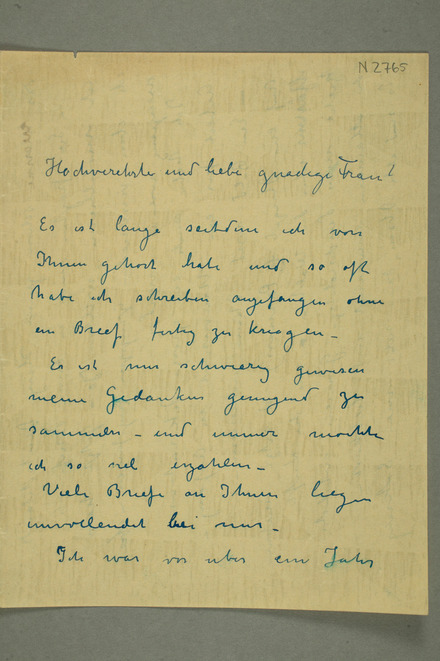 N 2765
Hochverehrte und liebe gnädige Frau!
Es ist lange seitdem ich von
Ihnen gehört habe und so oft
habe ich schreiben angefangen ohne
ein Brief fertig zu kriegen –
Es ist mir schwierig gewesen
meine Gedanken genügend zu
sammeln – und immer möchte
ich so viel erzählen –
Viele Briefe an Ihnen liegen
unvollendet bei mir –
Ich war vor über ein Jahr